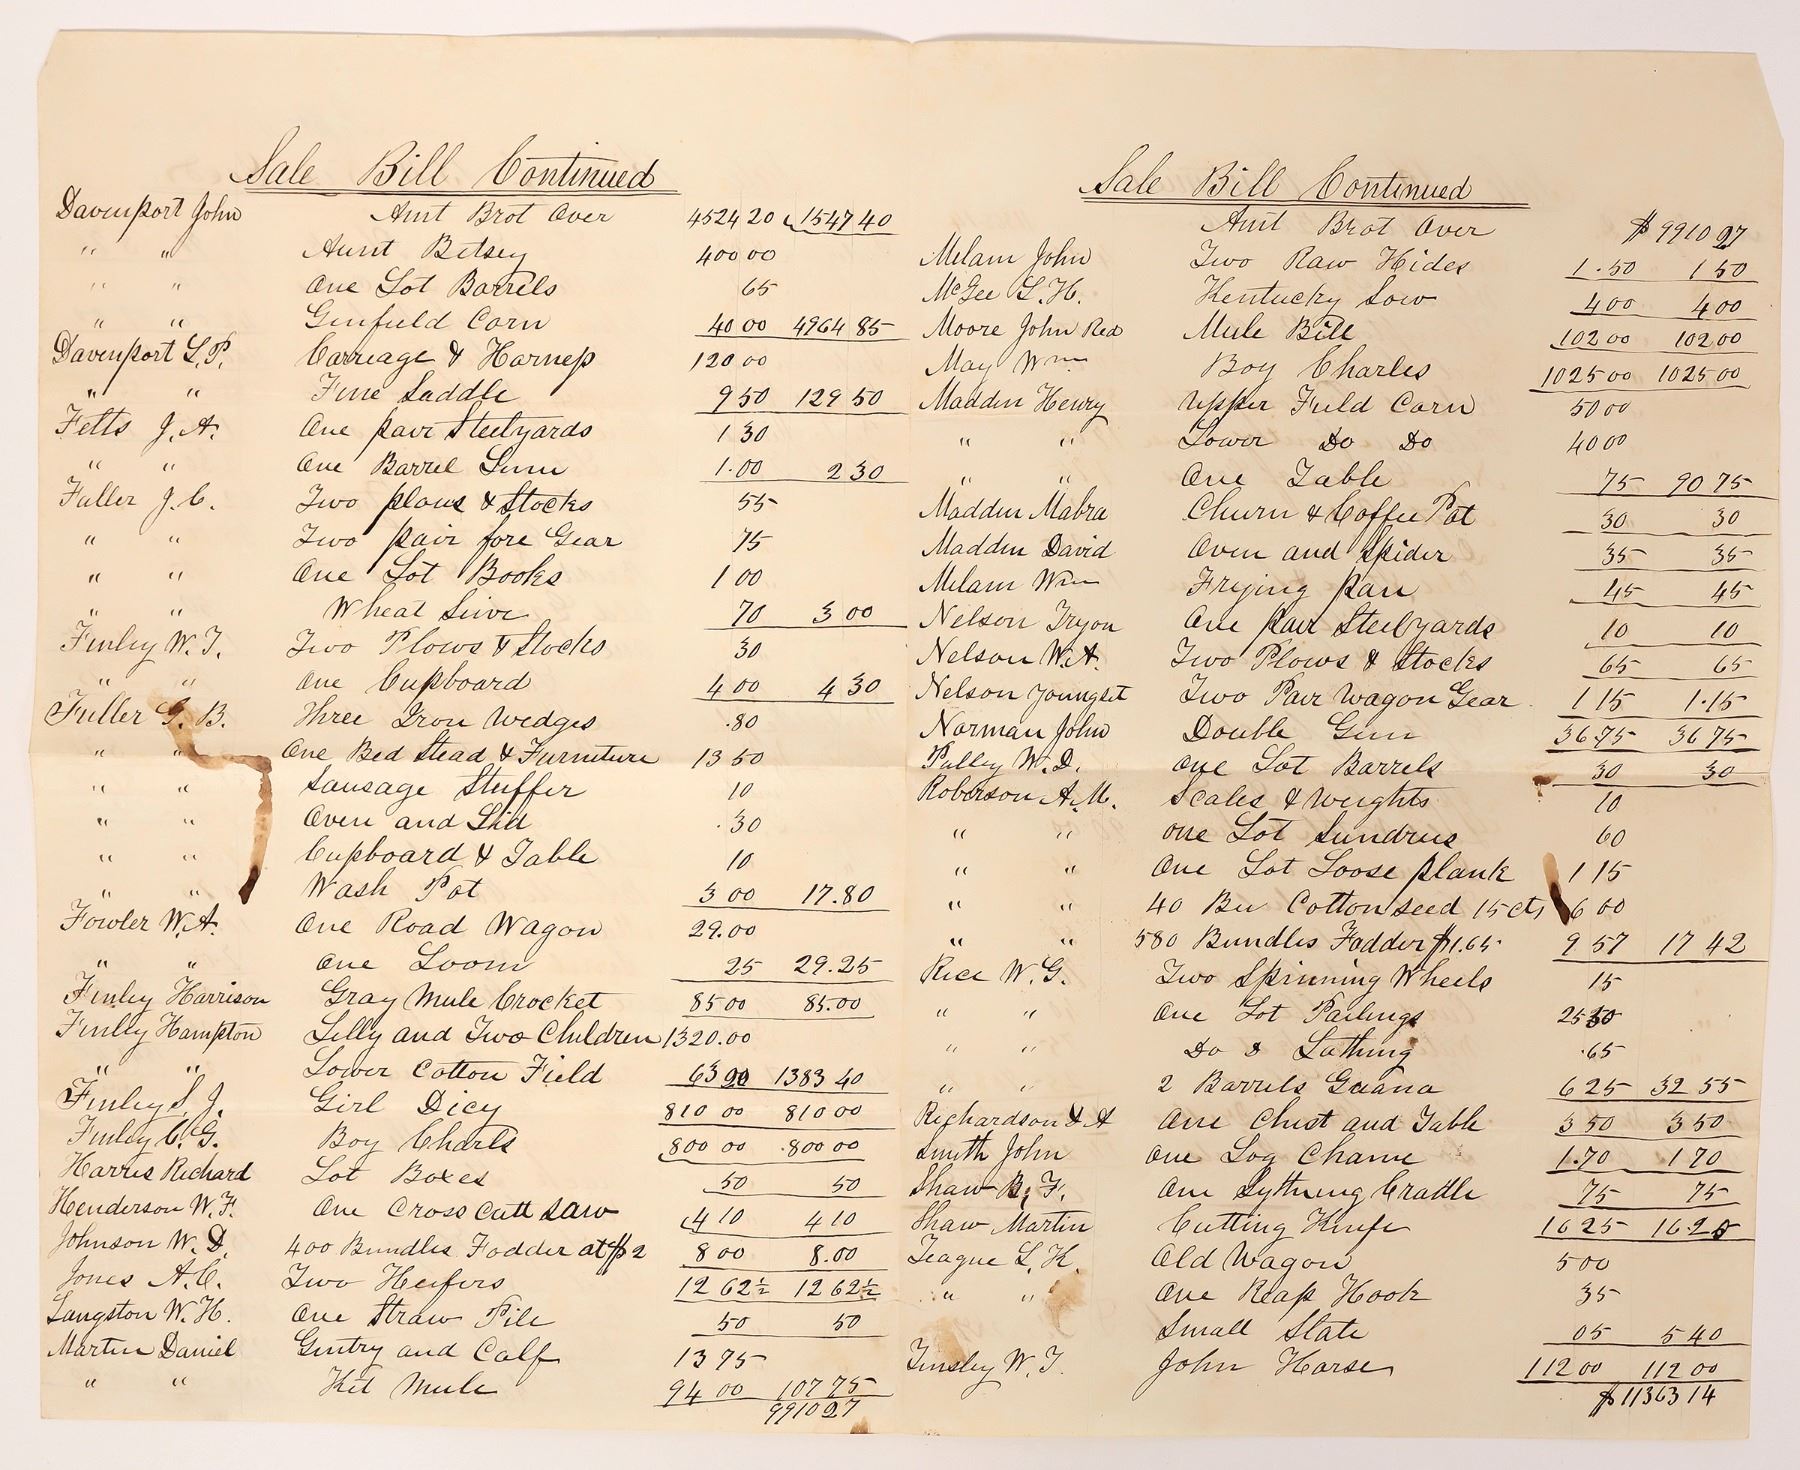 Sale Bill Continued
Davenport John Amt Brot Over 4524 20 1547 40
" " Aunt Betsey 400 00
" " One Lot Barrels 65
" " Ginfield Corn 40 00 4964 85
Davenport L. P. Carreage & Harness 120 00
" " Fine Saddle 9 50 129 50
Fetts J. A. One pair Steelyards 1 30
" " One Barrel 1.00 2 30
Fuller J. C. Two plows & Stocks 55
" " Two pair fore Gear 75
" " One Lot Books 1 00
" " Wheat Seive 70 3 00
Finley W. T. Two Plows & Stocks 30
" " One Cupboard 4 00 4 30
Fuller G. B. Three Iron Wedges .80
" " One Bed Stead & Furniture 13 50
" " Sausage Stuffer 10
" " Oven and Lid .30
" " Cupboard & Table 10
" " Wash Pot 3 00 17.80
Fowler W. A. One Road Wagon 29.00
" " One Loom 25 29.25
Finley Harrison Gray Mule Crocket 85 00 85.00
Finley Hampton Lilly and Two Children 1320.00
" " Lower Cotton Field 63 1383 40
Finley S. J. Girl Dicy 810 00 810 00
Finley C. G. Boy Charls 800 00 .800 00
Harris Richard Lot Boxes 50 50
Henderson W. F. One Cross Cutt Saw 4 10 4 10
Johnson W. D. 400 Bundles Fodder at $2 8 00 8.00
Jones A. C. Two Heifers 12 62½ 12 62½
Langston W. H. One Straw Pile 50 50
Martin Daniel Gentry and Calf 13 75
" " Kit Mule 94 00 107 75
9910 27
Sale Bill Continued
Amt Brot Over $ 9910 27
Melam John Two Raw Hides 1.50 1 50
McGee L. H. Kentucky Sow 4 00 4 00
Moore John Red Mule Bill 102 00 102 00
May Wm Boy Charles 1025 00 1025 00
Madden Henry Upper Field Corn 50 00
" " Lower Do Do 40 00
" " One Table 75 90 75
Madden Mabra Churn & Coffee Pot 30 30
Madden David Oven and Spider 35 35
Melam Wm Frying pan 45 45
Nelson Tryon One pair Steelyards 10 10
Nelson W. A. Two Plows & Stocks 65 65
Nelson Youngset Two Pair Wagon Gear 1 15 1.15
Norman John Double Gun 36.75 36 75
Pulley W. D. One Lot Barrels 30 30
Roberson A. M. Scales & Weights 10
" " One Lot Sundries 60
" " One Lot Loose plank 1 15
" " 40 Bu Cotton seed 15 cts 6 00
" " 580 Bundles Fodder $1.65 9 57 17 42
Rice W. G. Two Spinning Wheels 15
" " One Lot Pailings 25 50
" " Do & Lathing .65
" " 2 Barrels Guana 6 25 32 55
Richardson & A One Chest and Table 3 50 3 50
Smith John One Log Chane 1.70 1 70
Shaw B. F. One Sythning Cradle 75 75
Shaw Martin Cutting Knife 16 25 16.25
Teague L. K. Old Wagon 5 00
" " One Reap Hook 35
Small Slate 05 5 40
Tinsley W. T. John Horse 112 00 112 00
$ 11363 14